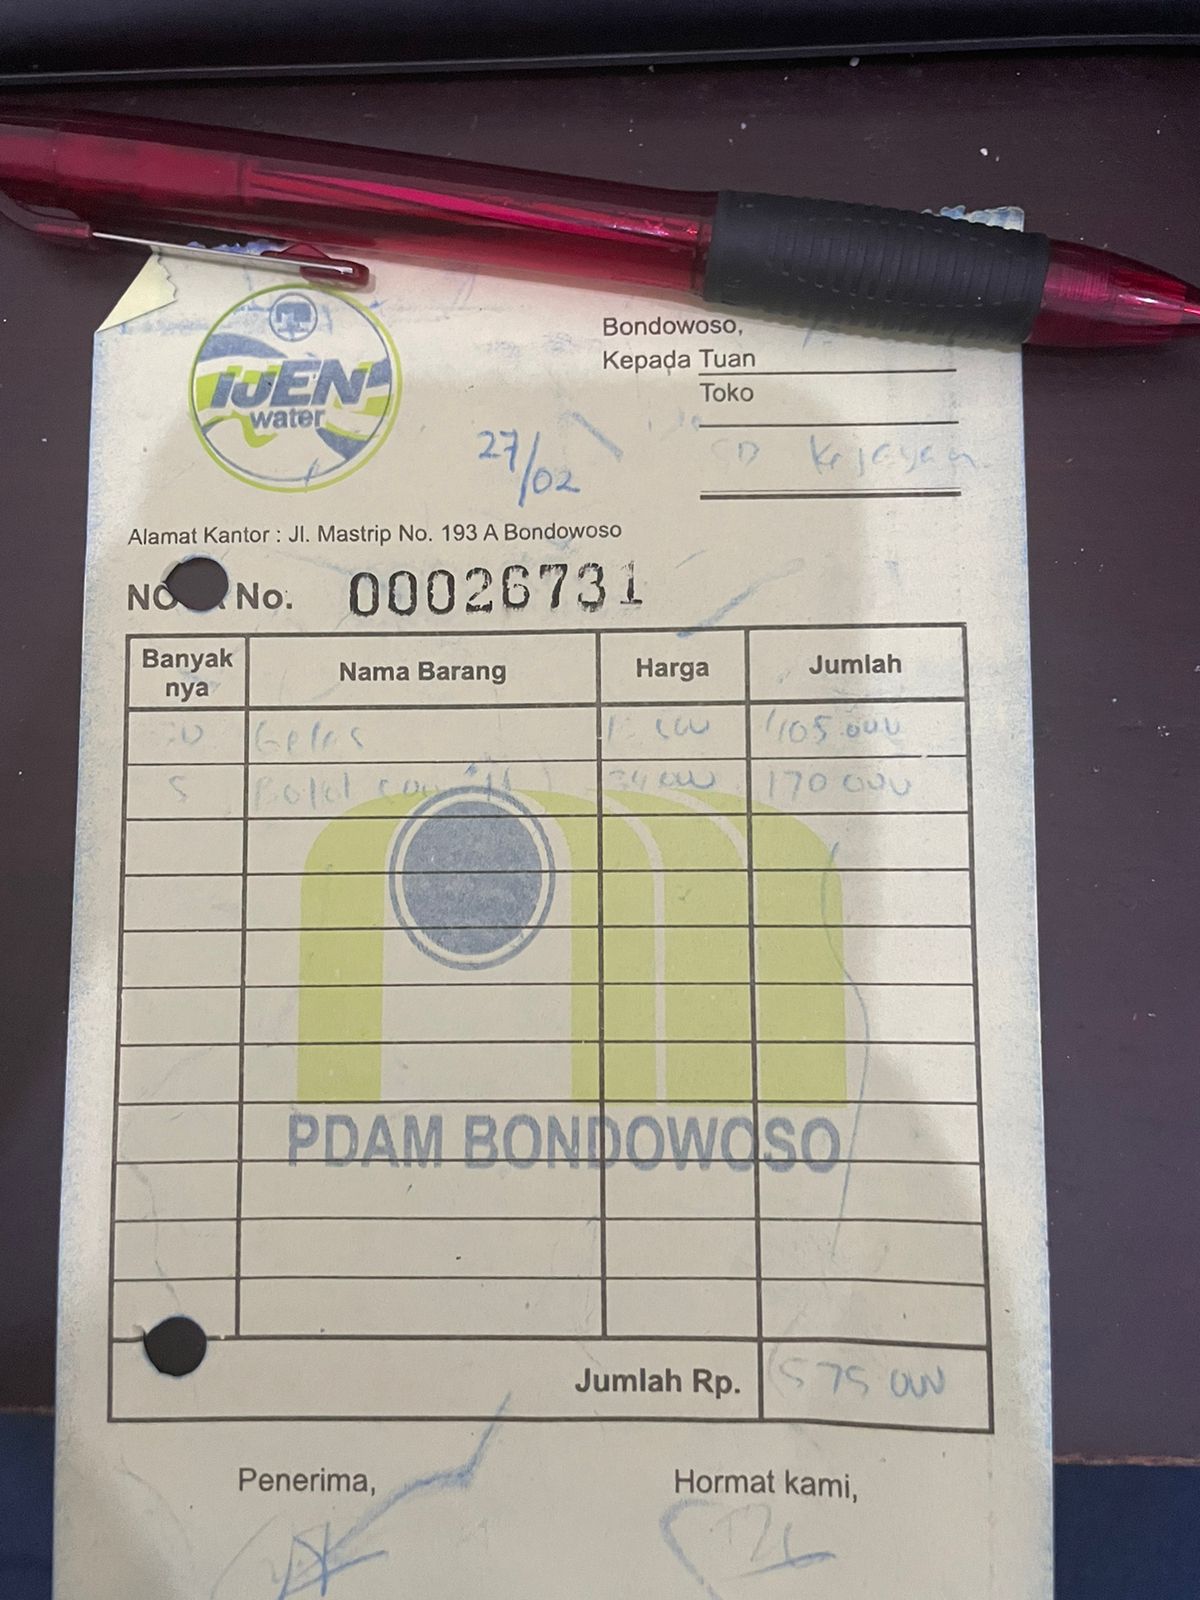 IJEN
water
Bondowoso,
Kepada Tuan
Toko
27/02
SD Kejayan
Alamat Kantor : Jl. Mastrip No. 193 A Bondowoso
No. 00026731
Banyak nya Nama Barang Harga Jumlah
Gelas 405 000
5 Botol 34 000 170 000
PDAM BONDOWOSO
Jumlah Rp. 575 000
Penerima, Hormat kami,